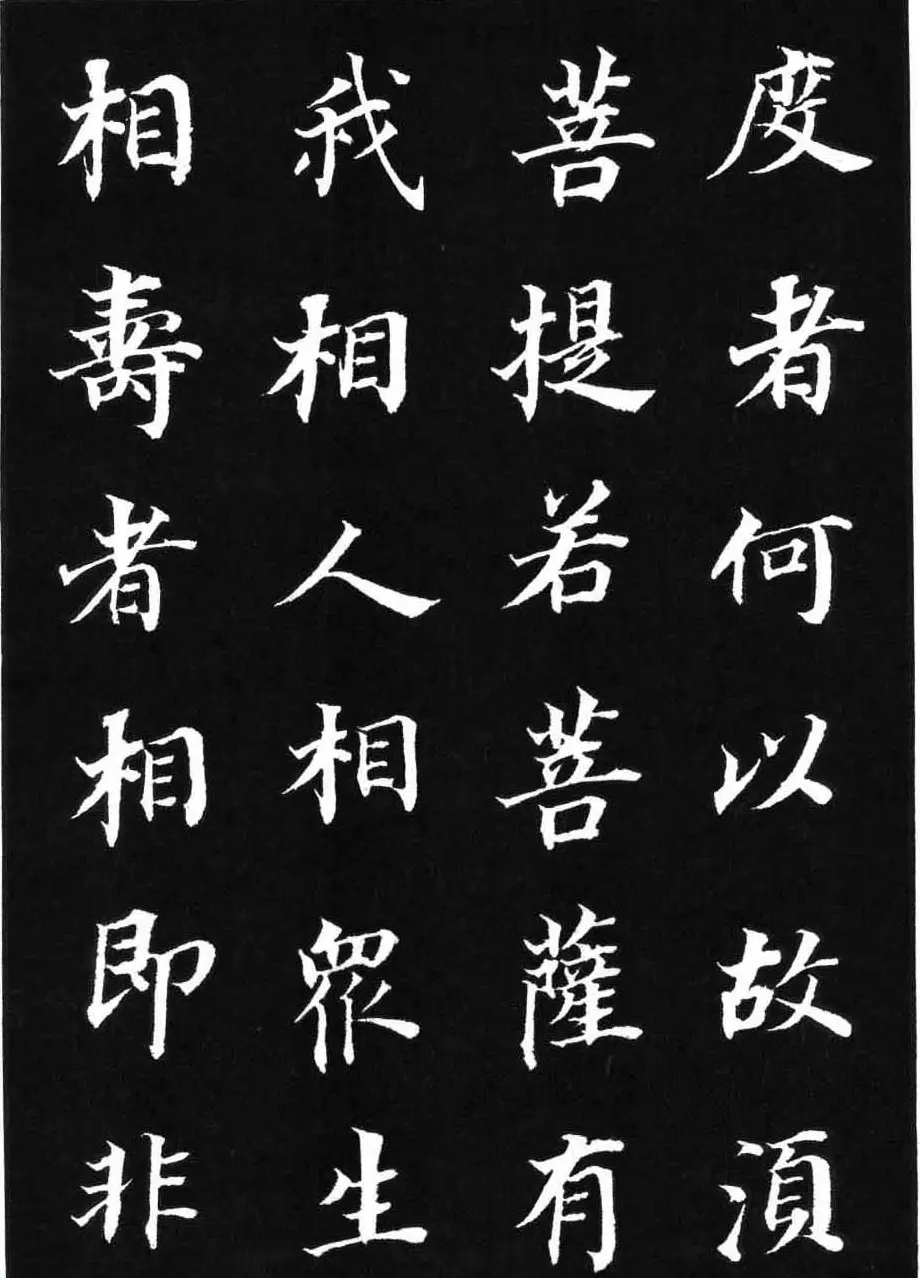 度者何以故湏
菩提若菩薩有
我相人相眾生
相壽者相即非